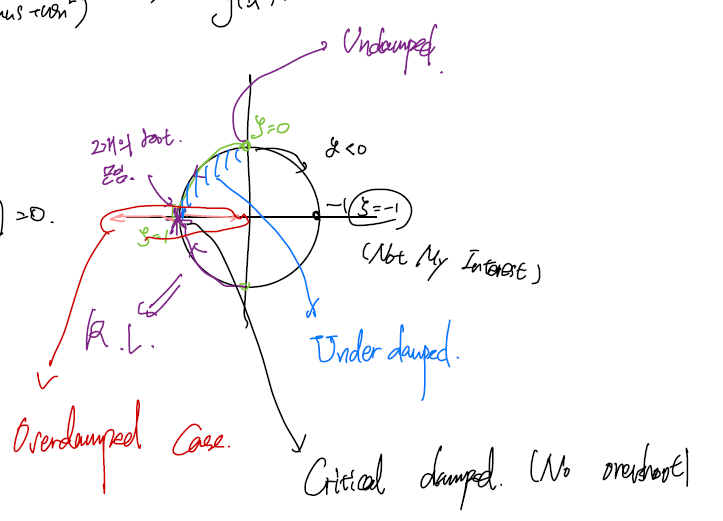 Undamped.
ζ=0
2개의 root.
ζ<0
] =0.
-1 ζ=-1
ζ=1
(Not My Interest)
R.L.
Under damped.
Overdamped Case.
Critical damped. (No overshoot)